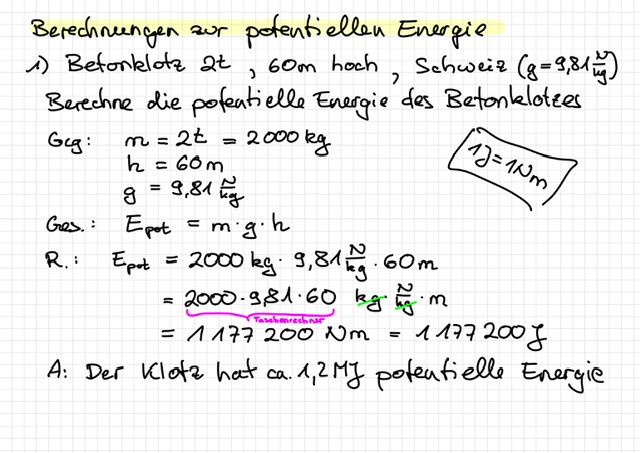 Berechnungen zur potentiellen Energie
1) Betonklotz 2t, 60m hoch, Schweiz (g=9,81 N/kg)
Berechne die potentielle Energie des Betonklotzes
Geg: m = 2t = 2000 kg
h = 60m
g = 9,81 N/kg
1J = 1Nm
Ges.: Epot = m·g·h
R.: Epot = 2000 kg · 9,81 N/kg · 60m
= 2000·9,81·60 kg · N/kg · m
Taschenrechner
= 1 177 200 Nm = 1 177 200 J
A: Der Klotz hat ca. 1,2 MJ potentielle Energie